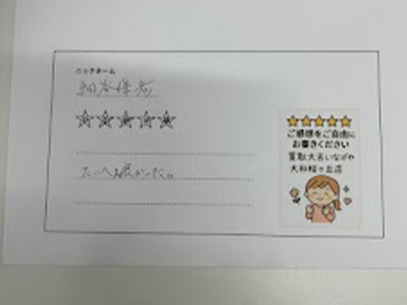 ニックネーム
☆☆☆☆☆
たいへん良かった。
★★★★★
ご感想をご自由に
お書きください
買取大吉いなげや
大和桜ヶ丘店